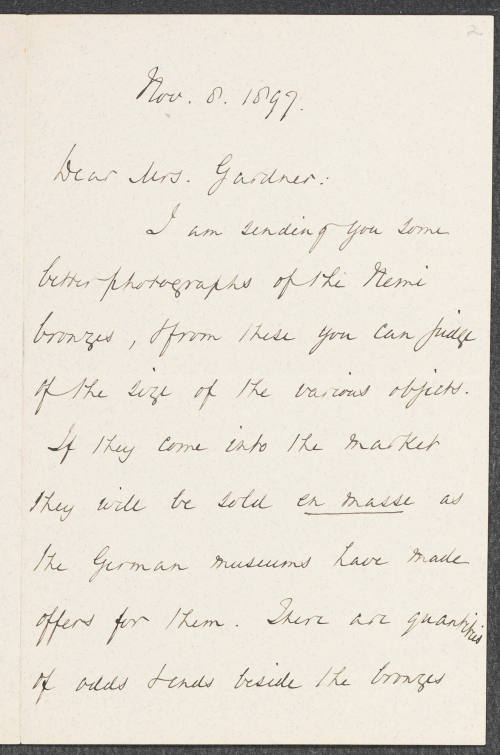 2
Nov. 8. 1897.
Dear Mrs. Gardner:
I am sending you some
better photographs of the Nemi
bronzes, & from these you can judge
of the size of the various objects.
If they come into the market
they will be sold en masse as
the German museums have made
offers for them. There are quantities
of odds & ends beside the bronzes